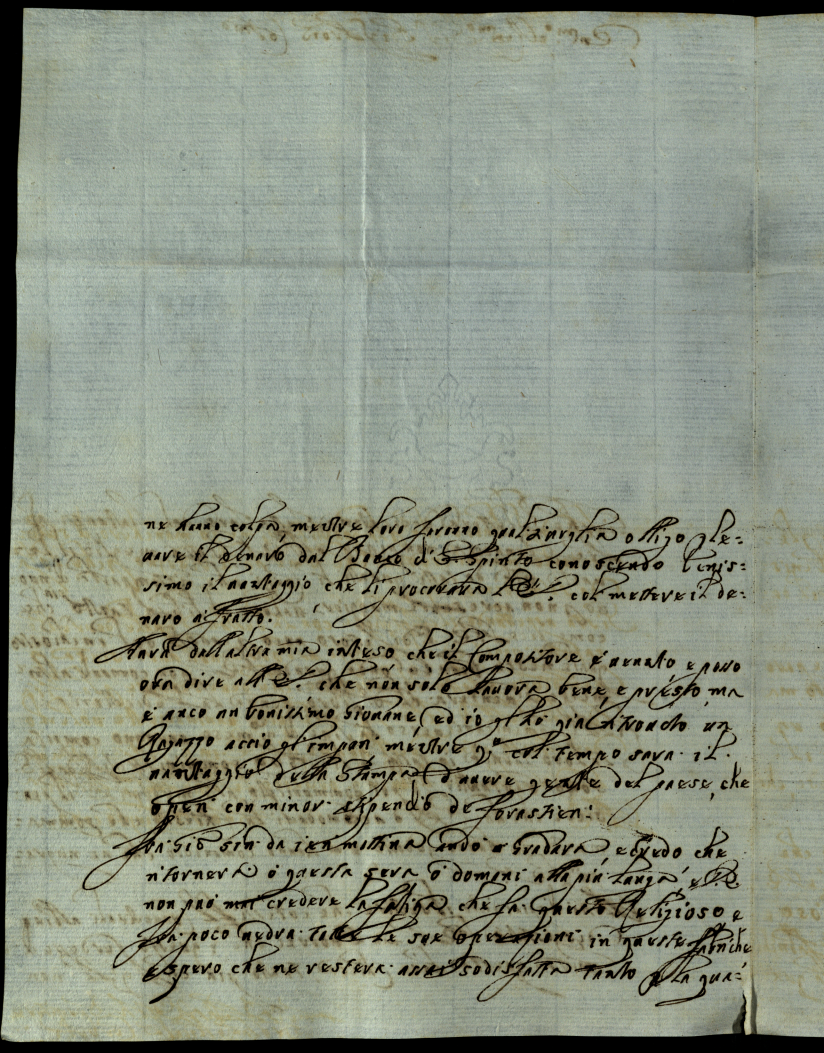 ne hanno colpa, mentre loro furono qual'invglia o sligo p le=
uare il denaro dal Banco di S. Spirito conoscendo benis=
simo il uantaggio che li procuraua V.E. col mettere il de=
naro a frutto.
Haurà dall'altra mia inteso che il Compositore è uenuto e posso
ora dire all'E.V. che non solo lauora bene, e presto, ma
è anco un bonissimo Giouane, ed io gl'ho già ritrouato un
Ragazzo acciò gl'impari mentre p.ª col tempo sarà il
uantaggio della Stampa d'hauere gente del paese, che
operi con minor stipendio de forastieri.
Fra Gio sin da ieri mattina andò a Gradara, e credo che
ritornerà ò questa sera ò domani alla più lunga, e V.E.
non può mai credere la fatiga che fa questo Religioso e
fra poco uedrà tutte le sue operazioni in queste fabriche
e spero che ne resterà assai sodisfatta tanto p la qua=